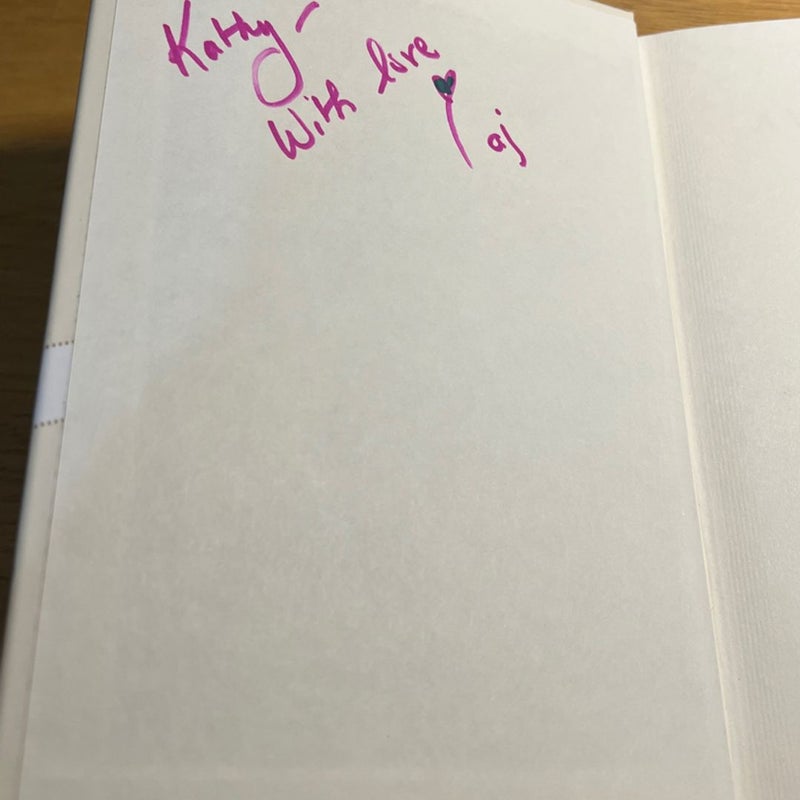 Kathy -
With love
aj